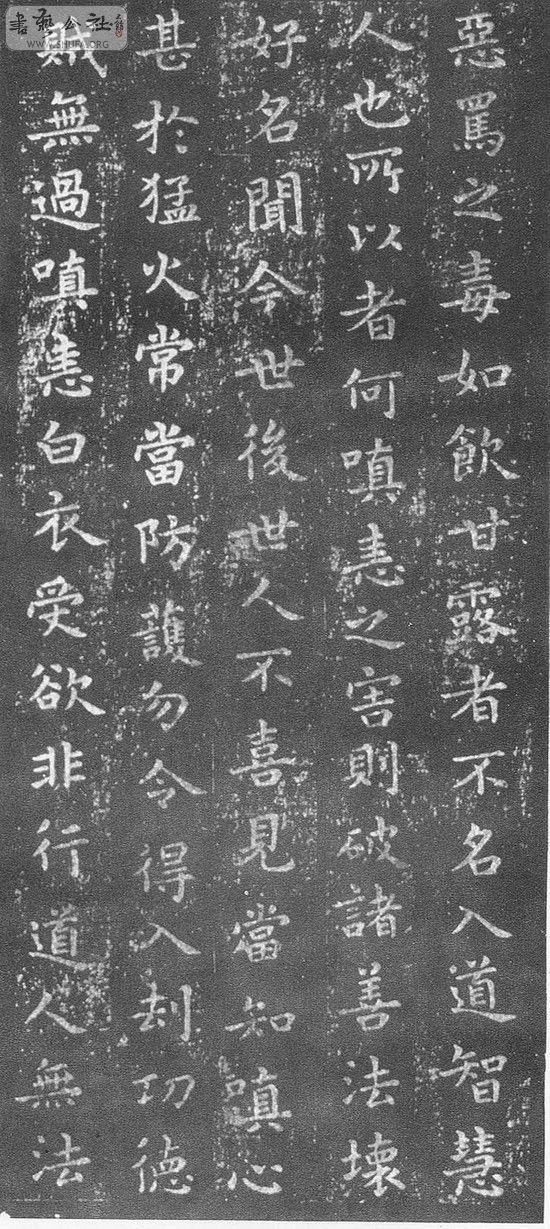 惡罵之毒如飲甘露者不名入道智慧
人也所以者何嗔恚之害則破諸善法壞
好名聞今世後世人不喜見當知嗔心
甚於猛火常當防護勿令得入刦功德
賊無過嗔恚白衣受欲非行道人無法
書藝公社
WWW.SHUFA.ORG